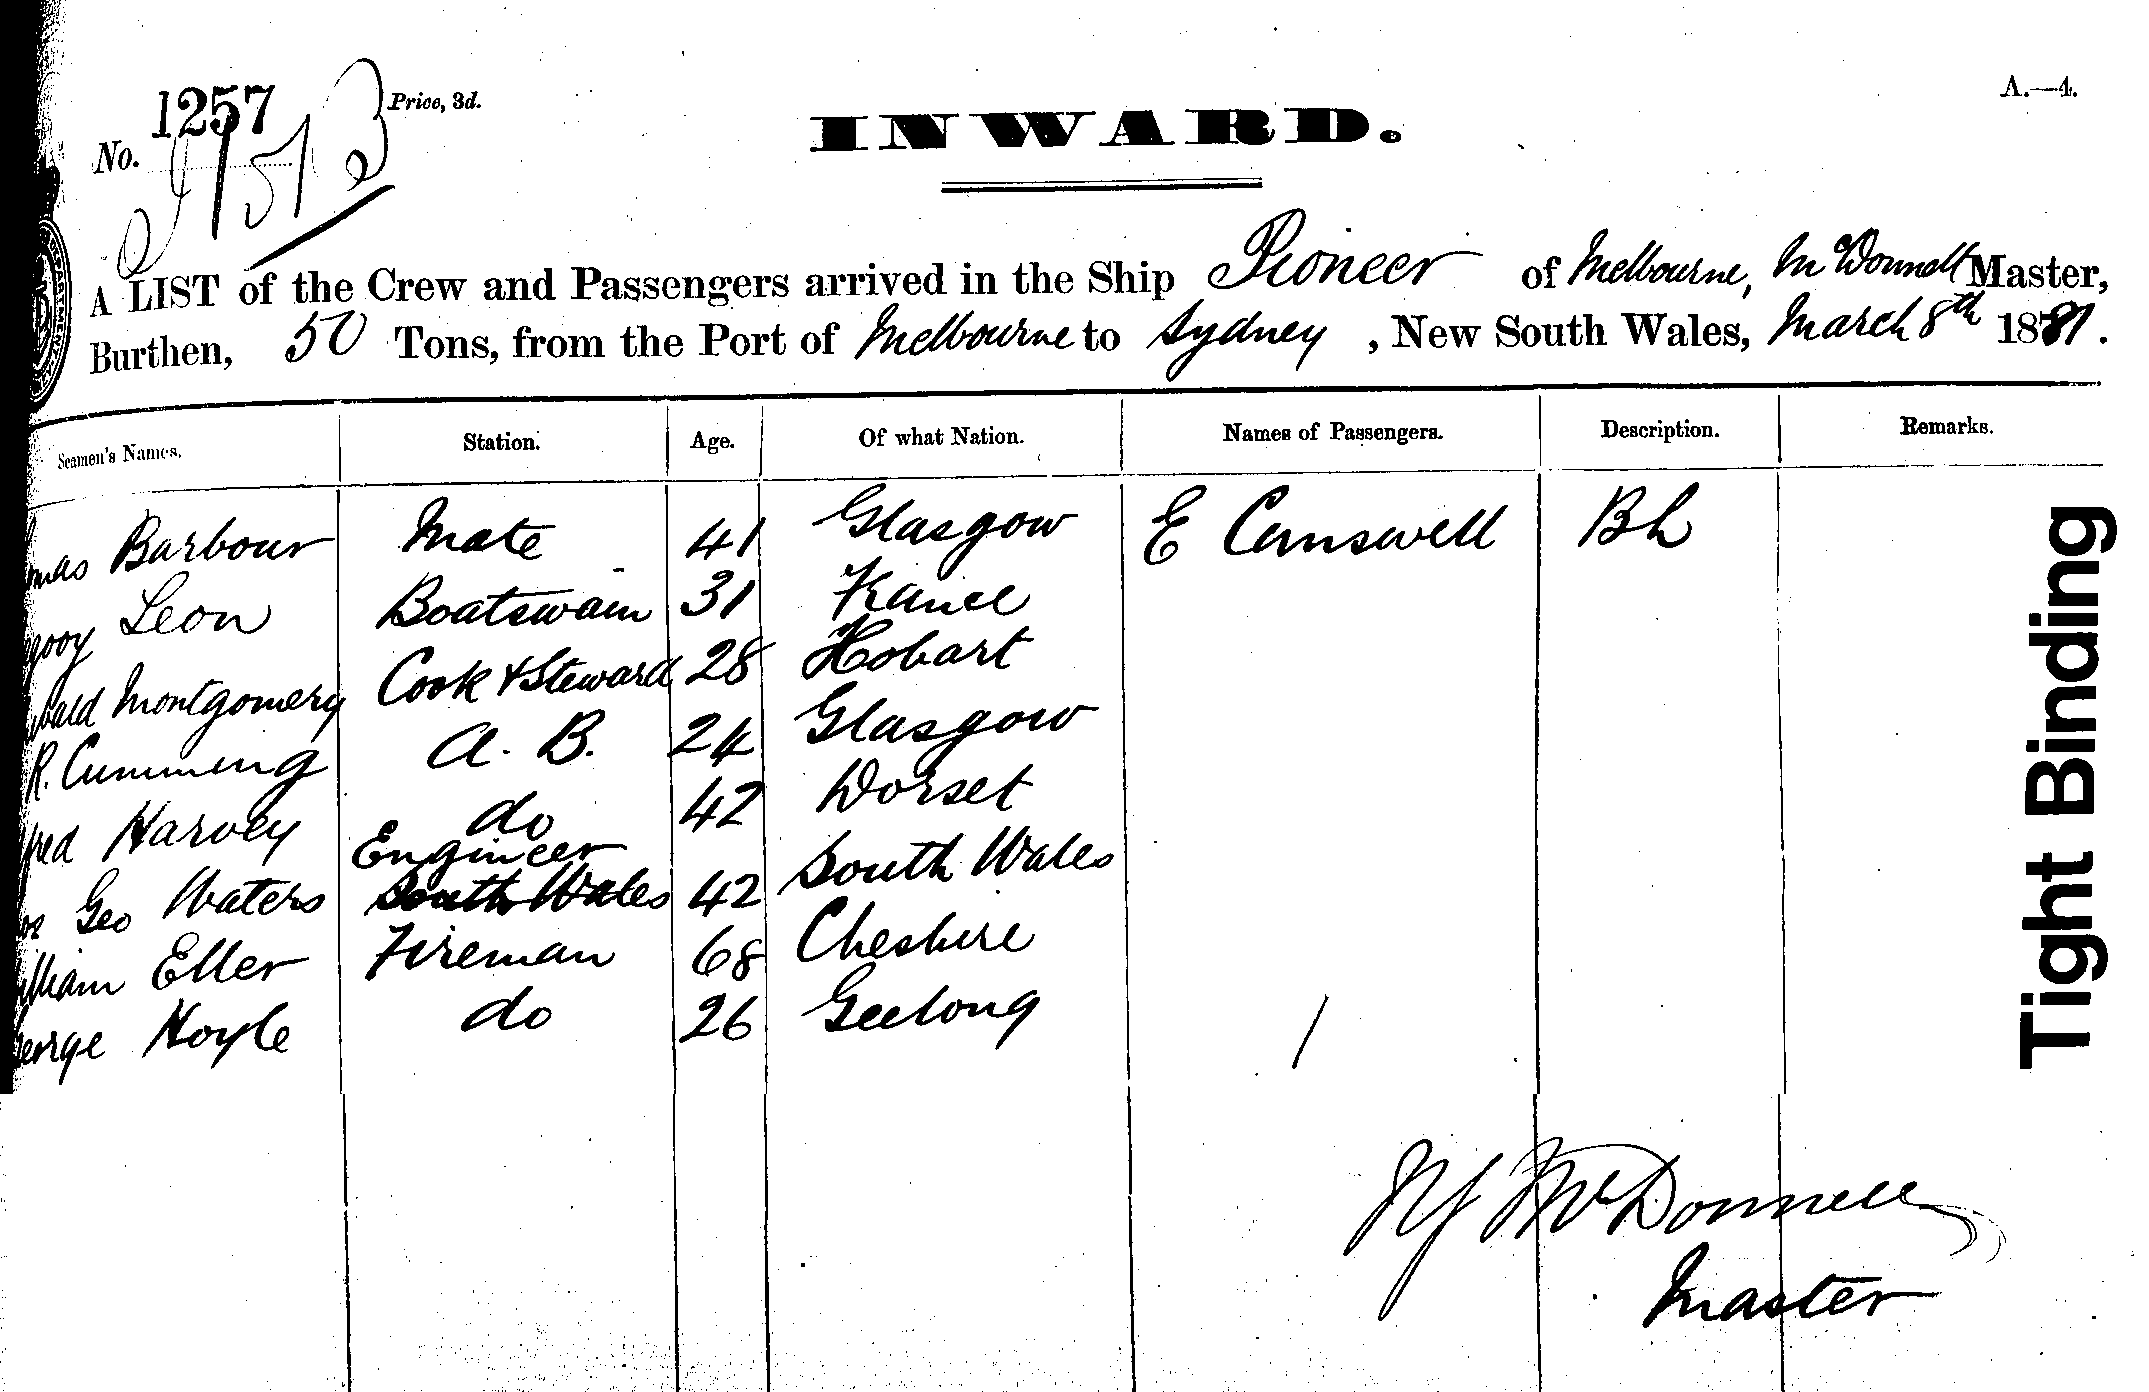 1257
No. Price, 3d.
A.—4.
INWARD.
A LIST of the Crew and Passengers arrived in the Ship Pioneer of Melbourne, McDonnell Master,
Burthen, 50 Tons, from the Port of Melbourne to Sydney, New South Wales, March 8th 1881.
Seamen's Names. Station. Age. Of what Nation. Names of Passengers. Description. Remarks.
omas Barbour Mate 41 Glasgow E Bh
Leon Boatswain 31
bald Montgomery Cook & Steward 28 Hobart
R. Cumming A. B. 24 Glasgow
fred Harvey do 42 Dorset
Engineer
Geo Waters South Wales 42 South Wales
illiam Eller Fireman 68 Cheshire
eorge Hoyle do 26 Geelong
McDonnell
Master
Tight Binding